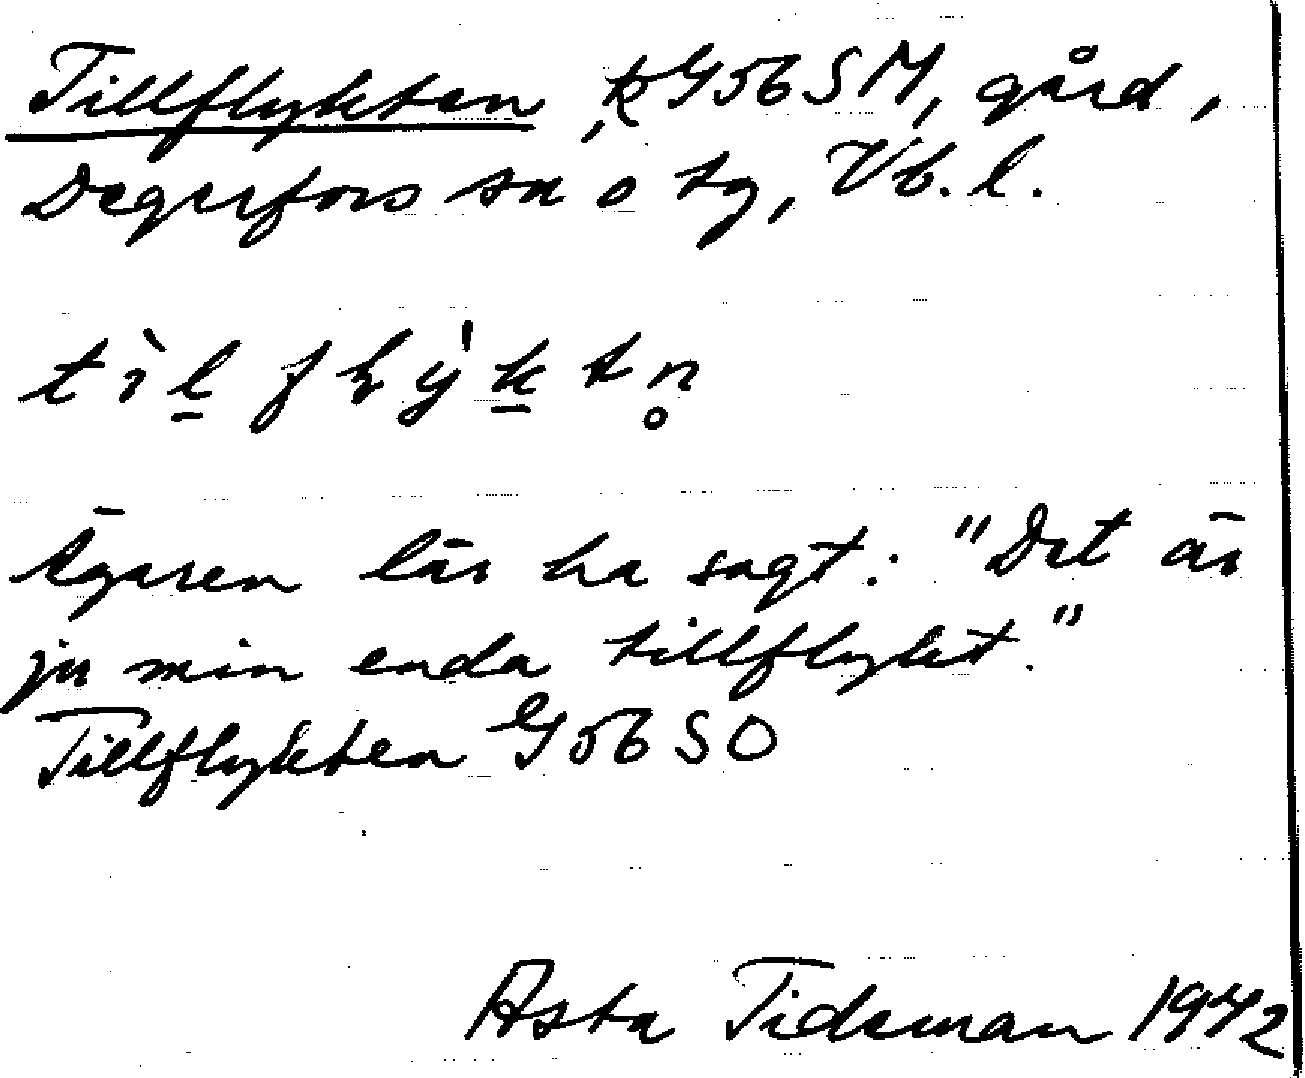 Tillflykten, kG56SM, gård,
Degerfors sn o tg, Vb. l.
tìlflýktn̥
Ägaren lär ha sagt: "Det är
ju min enda tillflykt."
Tillflykten G56SO
Asta Tideman 1942